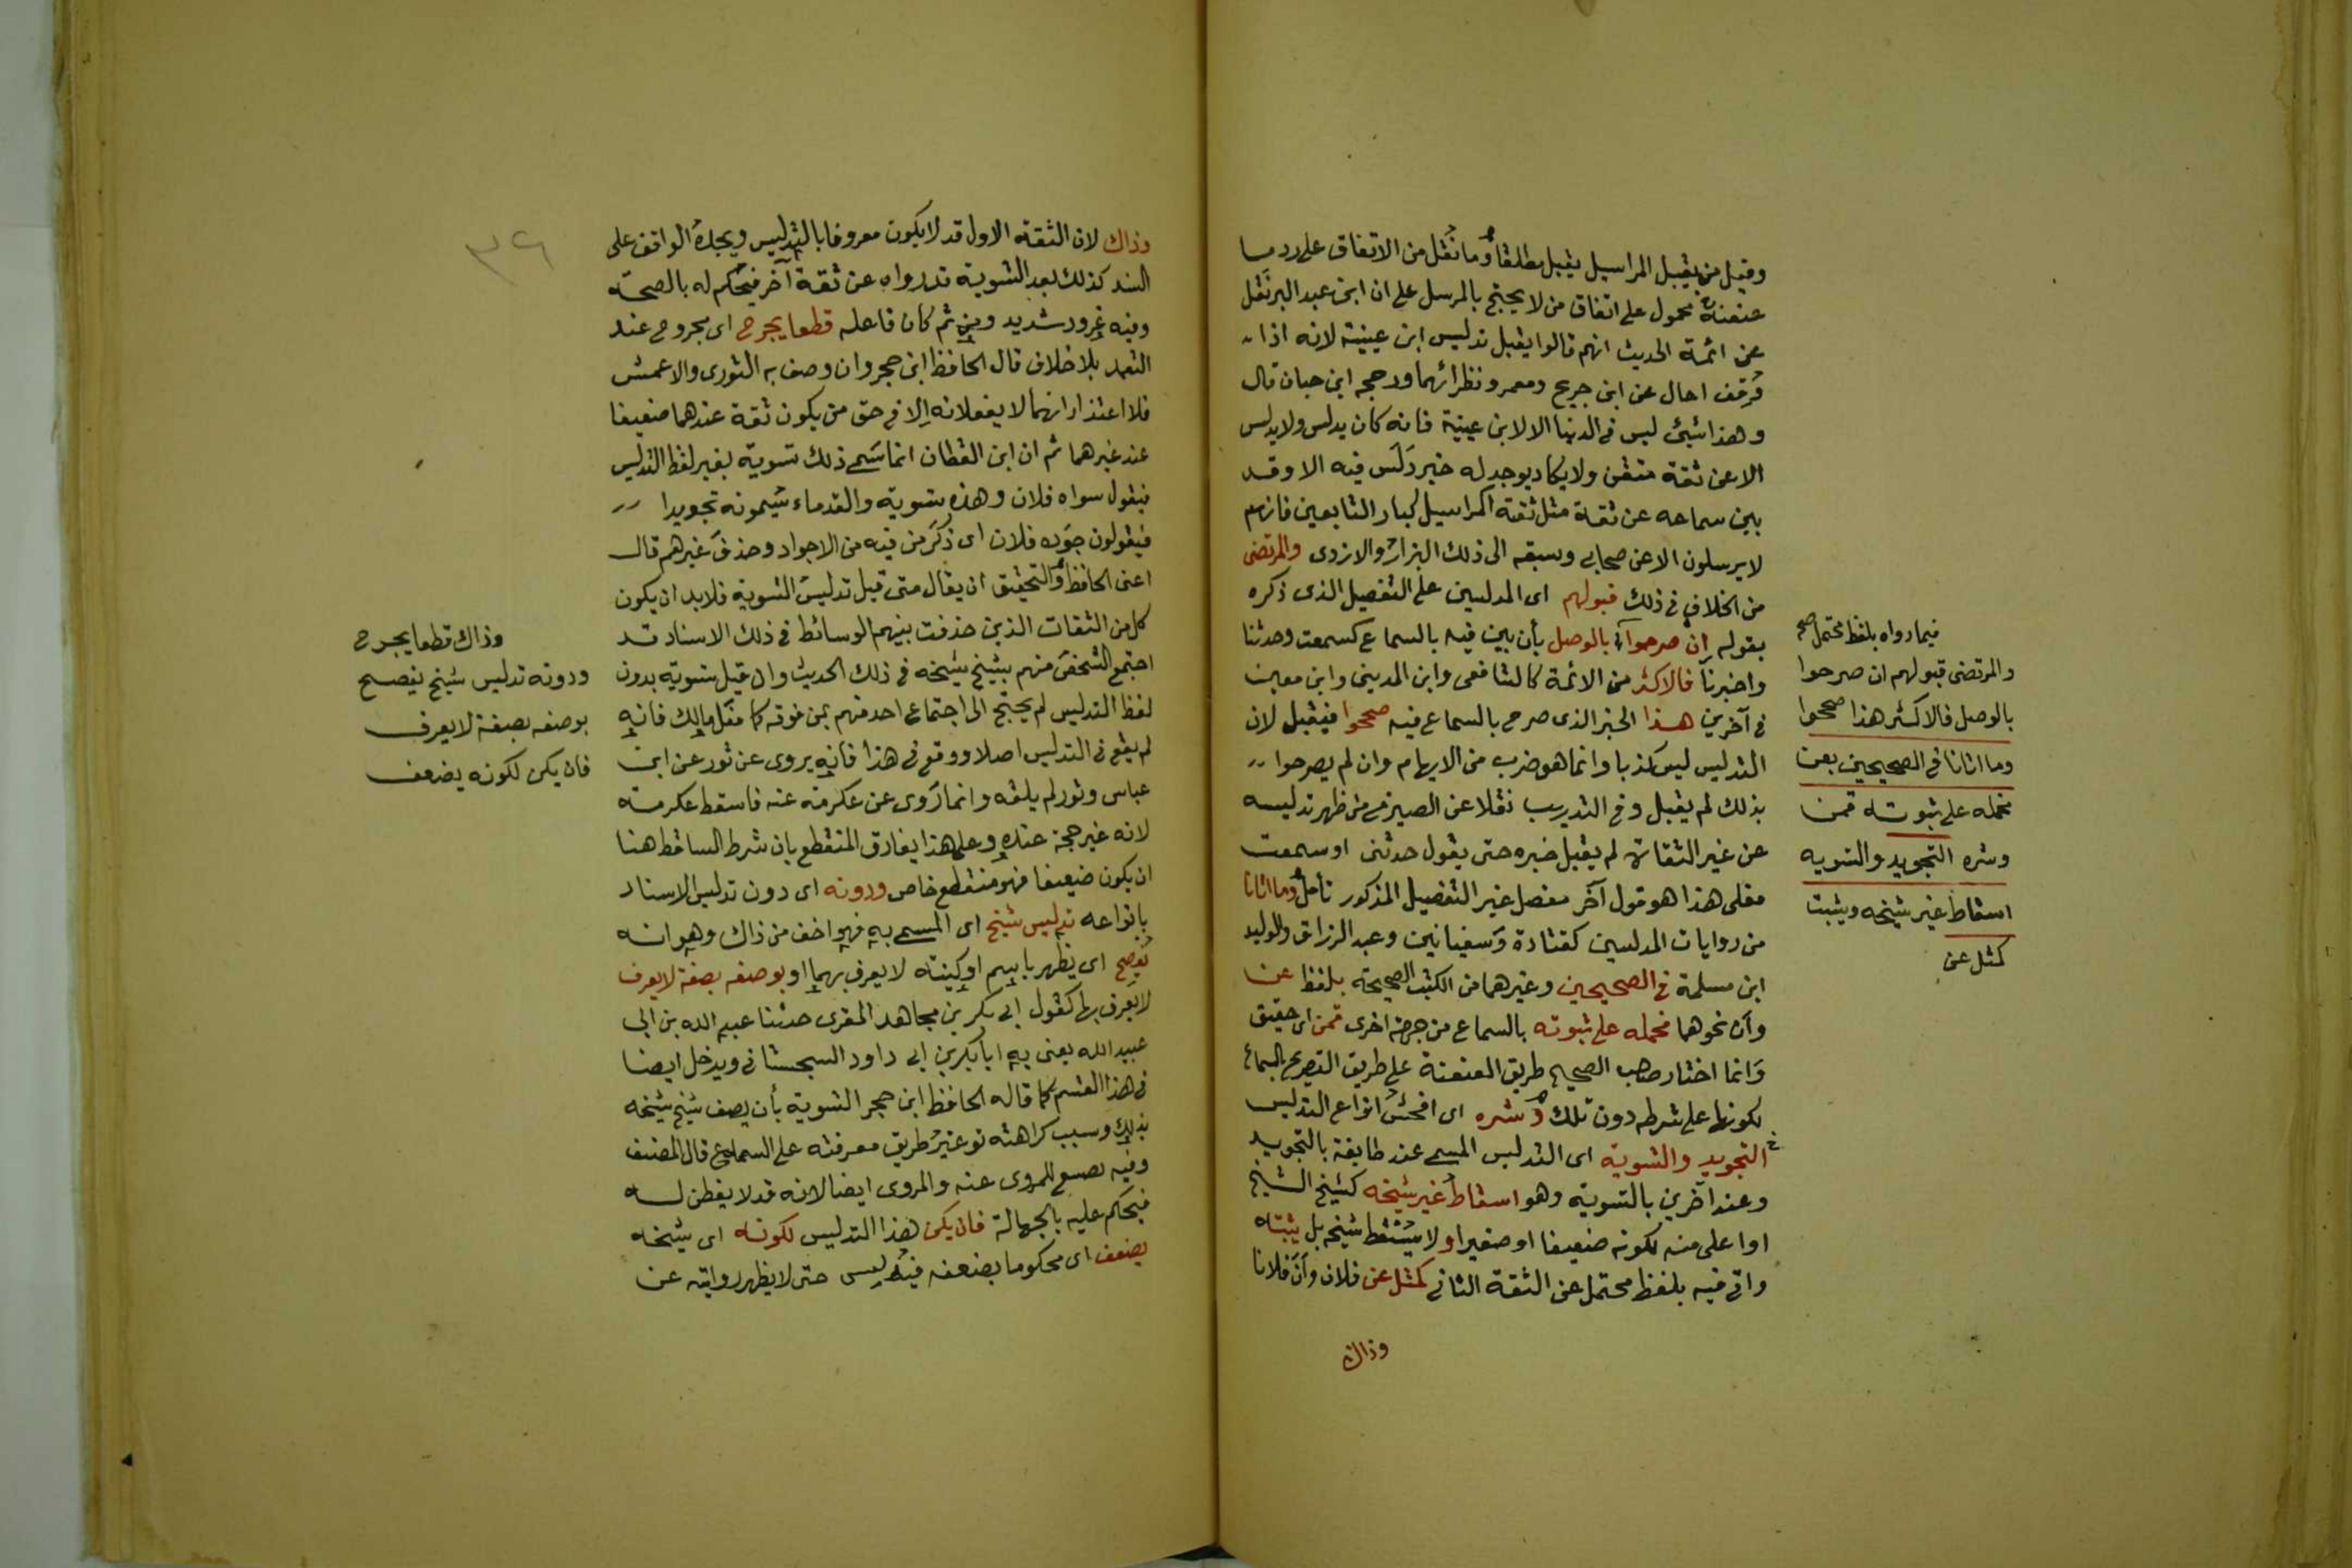 وقيل من يقبل المراسيل يقبل مطلقا وما نقل من الاتفاق على رد ما
عنعنه محمول على اتفاق من لا يحتج بالمرسل على ان ابن عبد البر نقل
عن ائمة الحديث انهم قالوا يقبل تدليس ابن عيينة لانه اذا
وقف احال عن ابن جريج ومعمر ونظرائهما ورجحه ابن حبان قال
وهذا شيئ ليس فى الدنيا الا لابن عيينة فانه كان يدلس ولا يدلس
الا عن ثقة متقن ولا يكاد يوجد له خبر دلس فيه الا وقد
بين سماعه عن ثقة مثل ثقته كمراسيل كبار التابعين فانهم
لا يرسلون الا عن صحابى وسبقه الى ذلك البزار والازدى والمرتضى
من الخلاف فى ذلك قبولهم اى المدلسين على التفصيل الذى ذكره
بقوله ان صرحوا بالوصل بأن بين فيه بالسماع كسمعت وحدثنا
واخبرنا فالاكثر من الائمة كالشافعى وابن المدينى وابن معين
فى آخرين هذا الخبر الذى صرح بالسماع فيه صححوا فيقبل لان
التدليس ليس كذبا وانما هو ضرب من الايهام وان لم يصرحوا
بذلك لم يقبل وفى التدريب نقلا عن الصيرفى من ظهر تدليسه
عن غير الثقات لم يقبل خبره حتى يقول حدثنى او سمعت
فعلى هذا هو قول آخر مفصل غير التفصيل المذكور تأمل وما اتانا
من روايات المدلسين كقتادة وسفيانين وعبد الرزاق والوليد
ابن مسلمة فى الصحيحين وغيرهما من الكتب الصحيحة بلفظ عن
وأن نحوهما فحمله على ثبوته بالسماع من جهة اخرى قمن اى حقيق
وانما اختار صاحب الصحيح طريق العنعنة على طريق التصريح بالسماع
لكونها على شرطه دون تلك وشره اى افحش انواع التدليس
التجويد والتسوية اى التدليس المسمى عند طايفة بالتجويد
وعند آخرين بالتسوية وهو اسقاط غير شيخه كشيخ الشيخ
او اعلى منه لكونه ضعيفا او صغيرا ولا يسقط شيخه بل يثبته
واتى فيه بلفظ محتمل عن الثقة الثانى كمثل عن فلان وأن فلانا
وذاك
فيما رواه بلفظ محتمل صح
والمرتضى قبولهم ان صرحوا
بالوصل فالاكثر هذا صححوا
وما اتانا فى الصحيحين بعن
فحمله على ثبوته قمن
وشره التجويد والتسويه
اسقاط غير شيخه ويثبت
كمثل عن
وذاك لان الثقة الاول قد لا يكون معروفا بالتدليس ويجده الواقف على
السند كذلك بعد التسوية قد رواه عن ثقة آخر فيحكم له بالصحة
وفيه غرور شديد ومن ثم كان فاعله قطعا يجرح اى مجروح عند
التعمد بلا خلاف قال الحافظ ابن حجر وان وصف به الثورى والاعمش
فلا اعتذار انهما لا يفعلانه الا فى حق من يكون ثقة عندهما ضعيفا
عند غيرهما ثم ان ابن القطان انما سمى ذلك تسوية بغير لفظ التدليس
فيقول سواه فلان وهذه تسوية والقدماء يسمونه تجويدا
فيقولون جوده فلان اى ذكر من فيه من الاجواد وحذف غيرهم قال
اعنى الحافظ والتحقيق ان يقال متى قيل تدليس التسوية فلا بد ان يكون
كل من الثقات الذين حذفت بينهم الوسائط فى ذلك الاسناد قد
اجتمع الشخص منهم بشيخ شيخه فى ذلك الحديث وان قيل تسوية بدون
لفظ التدليس لم يحتج الى اجتماع احد منهم بمن فوقه كما فعل مالك فانه
لم يقع فى التدليس اصلا ووقع فى هذا فانه يروى عن ثور عن ابن
عباس وثور لم يلقه وانما روى عن عكرمة عنه فاسقط عكرمة
لانه غير حجة عنده وعلى هذا يفارق المنقطع بان شرط الساقط هنا
ان يكون ضعيفا فهو منقطع خاص ودونه اى دون تدليس الاسناد
بانواعه تدليس شيخ اى المسمى به فهو اخف من ذاك وهو انه
يفصح اى يظهر باسم او كنيته لا يعرف بهما او بوصفه بصفة لا يعرف
لا يعرف بها كقول ابى بكر بن مجاهد المقرى حدثنا عبد الله بن ابى
عبيد الله يعنى به ابا بكر بن ابى داود السجستانى ويدخل ايضا
فى هذا القسم كما قاله الحافظ ابن حجر التسوية بأن يصف شيخ شيخه
بذلك وسبب كراهته توعير طريق معرفته على السامع قال المصنف
وفيه تضييع للمروى عنه والمروى ايضا لانه قد لا يفطن له
فيحكم عليه بالجهالة فان يكن هذا التدليس لكونه اى شيخه
يضعف اى محكوما بضعفه فيدلس حتى لا يظهر روايته عن
وذاك قطعا يجرح
ودونه تدليس شيخ يفصح
بوصفه بصفة لا يعرف
فان يكن لكونه يضعف
٣٦